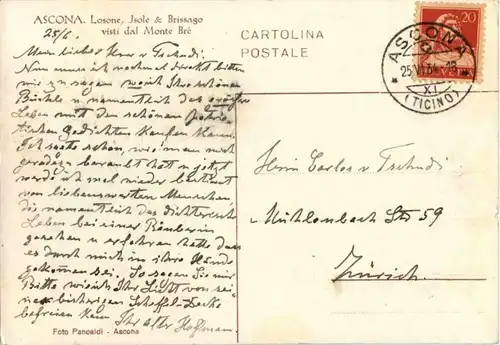 ASCONA. Losone, Jsole & Brissago
visti dal Monte Brè
25/6.
CARTOLINA
POSTALE
20
ASCONA
25.VI.34
XI
(TICINO)
Mein lieber Herr v Tschudi!
Nun muss ich nochmal direkt bitten
mir zu sagen wo ich Ihre schönen
Büchle u namentlich das
Leben mit den schönen
Gedichten kaufen kann.
Ich sagte schon, wie man mich
beraubt hat u jetzt
werde ich mal wieder
von liebenswerten Menschen,
die namentlich das
Leben bei einer
gesehen u erfahren hatte dass
es durch mich in ihre Hände
gekommen sei. So sagen Sie mir
Bitte wie ich Ihr Licht von sei-
ner bisherigen Scheffel-Decke
befreien kann Ihr alter Hoffmann
Herrn Carlos v Tschudi
Mühlenbach Str 59
Zürich.
Foto Pancaldi - Ascona